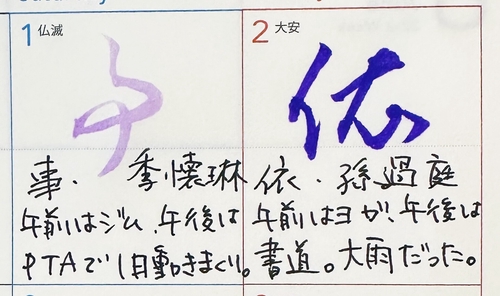 1 仏滅
事
事. 季懐琳
午前はジム、午後は
PTAで自動きまくり。
2 大安
依
依. 孫過庭
午前はヨガ、午後は
書道。大雨だった。